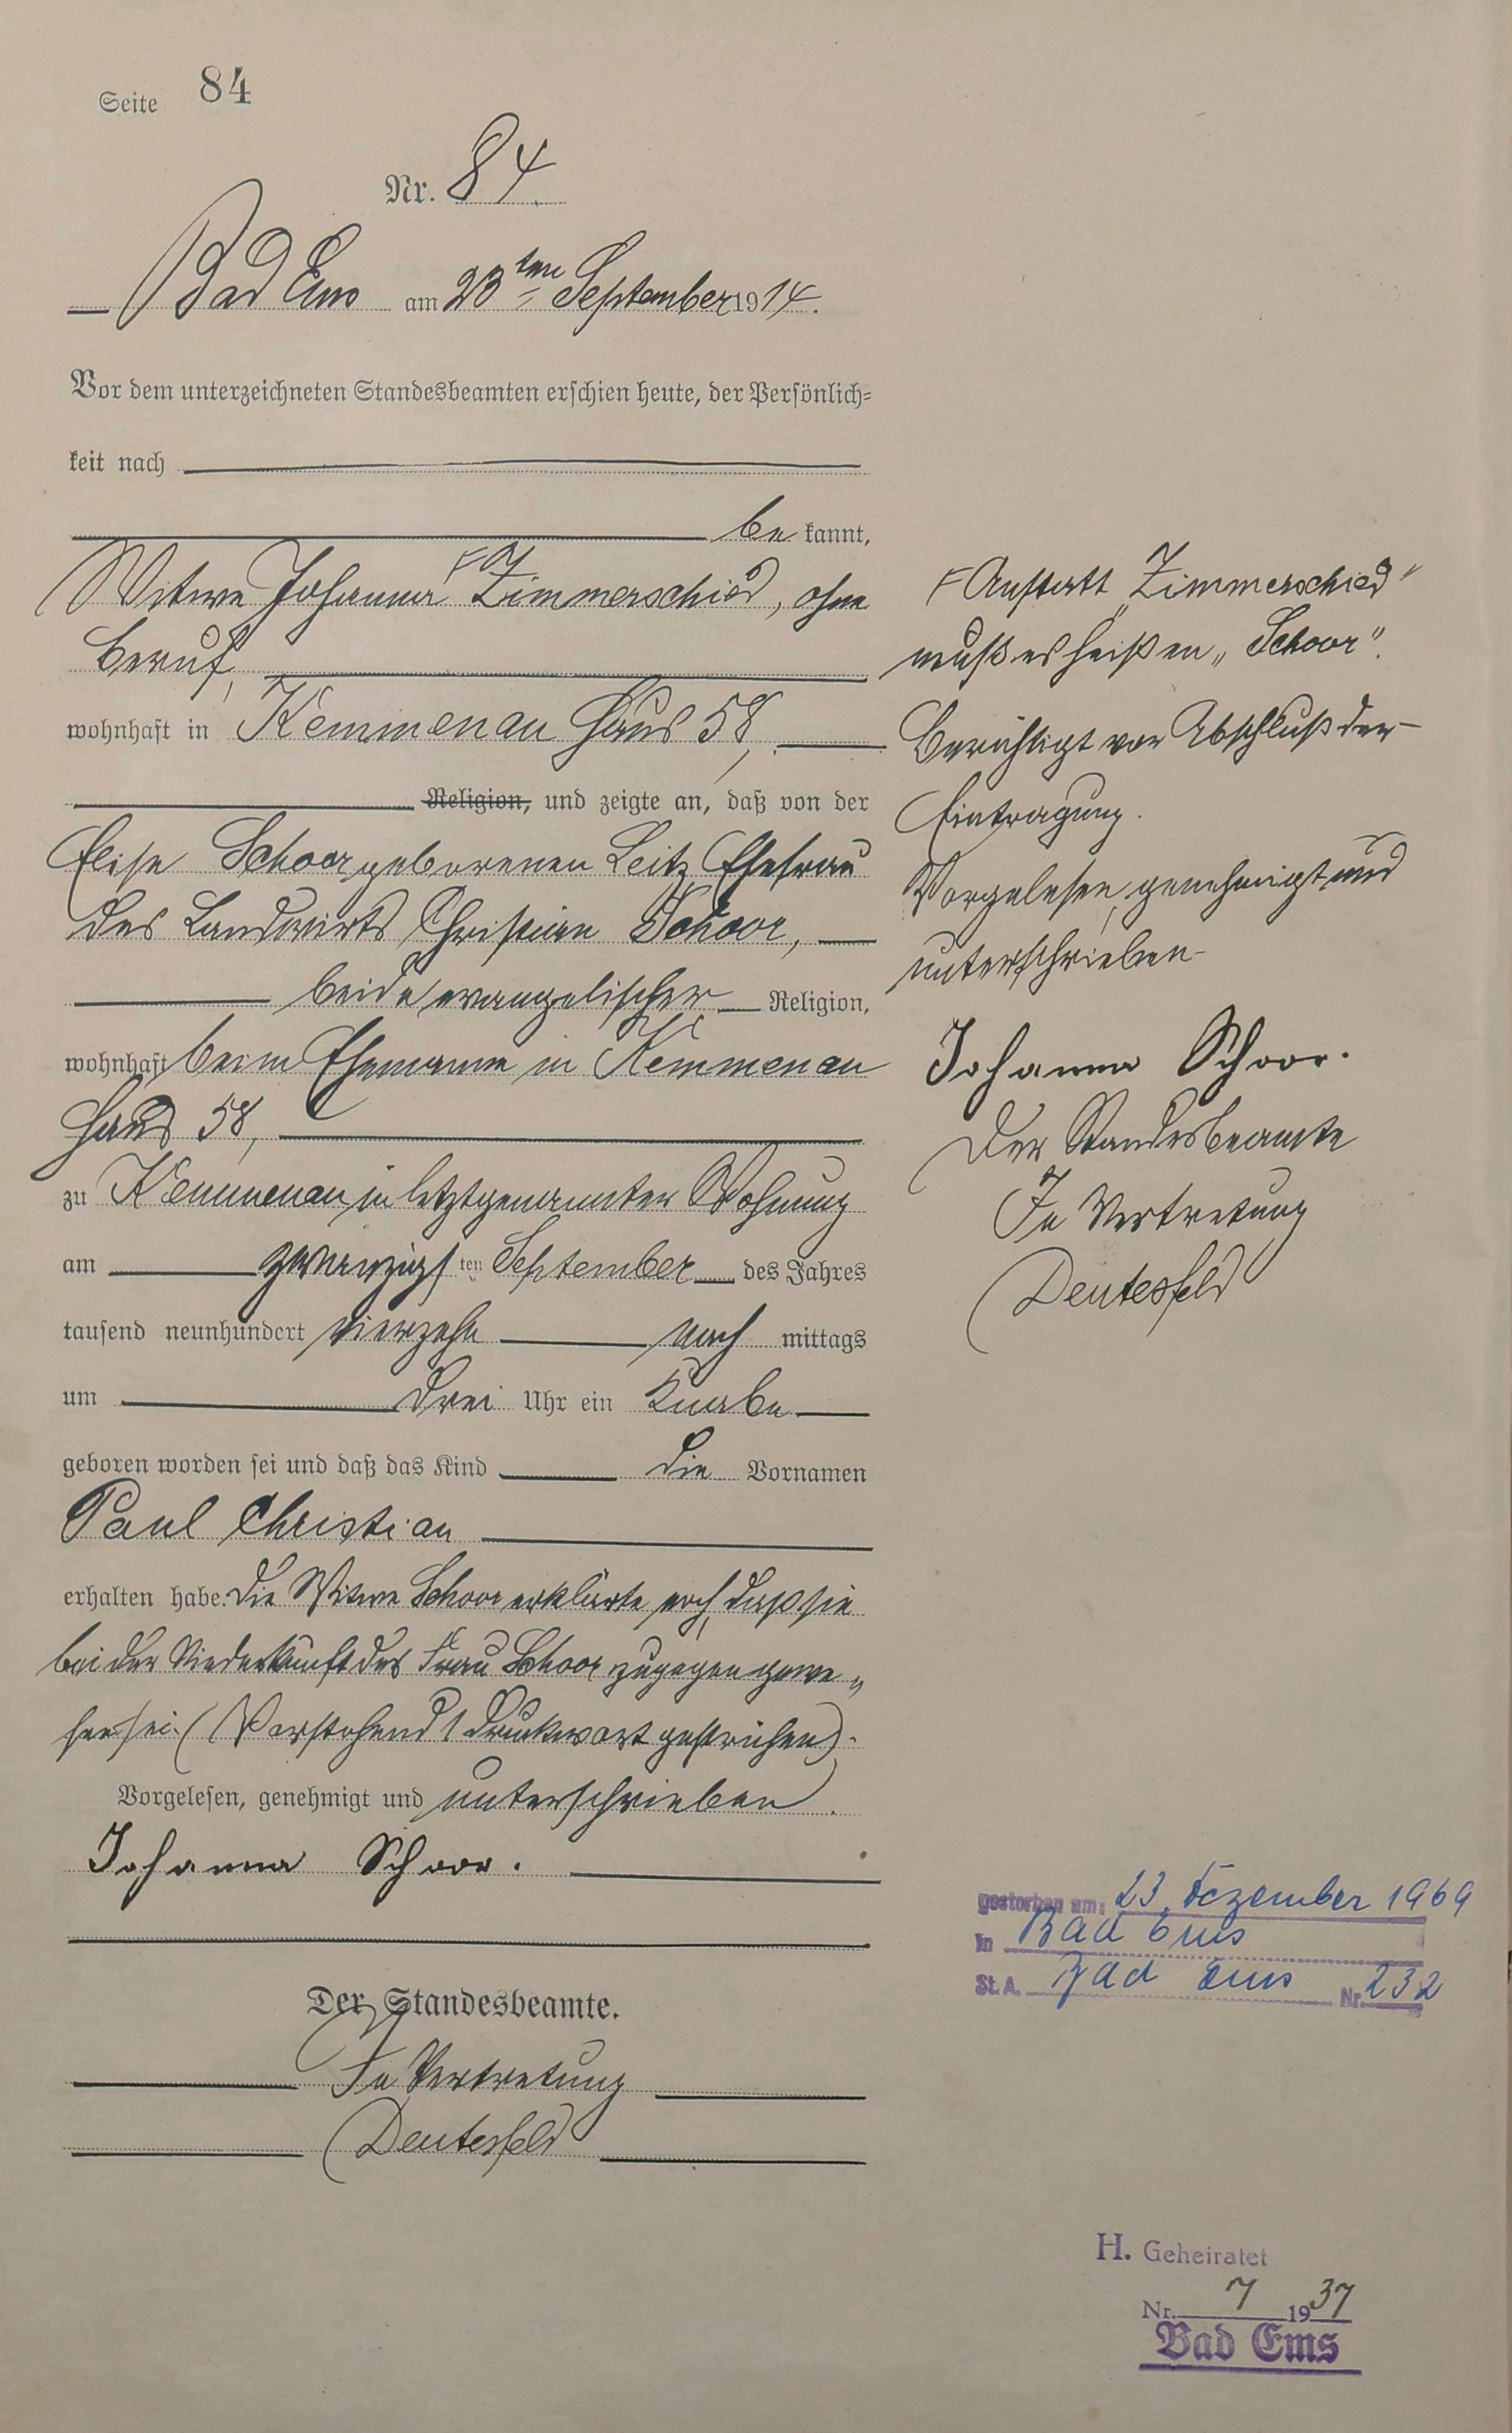 Seite 84
Nr. 84.
Bad Ems am 23ten September 1914.
Vor dem unterzeichneten Standesbeamten erschien heute, der Persönlich=
keit nach
be kannt,
Witwe Johanna Zimmerschied, ohne
Beruf,
wohnhaft in Kemmenau Haus 58,
Religion, und zeigte an, daß von der
Elise Schoor geborenen Leitz Ehefrau
des Landwirts Christian Schoor,
beide evangelischer Religion,
wohnhaft beim Ehemanne in Kemmenau
Haus 58,
zu Kemmenau in letztgenannter Wohnung
am zwanzigs ten September des Jahres
tausend neunhundert vierzehn nach mittags
um drei Uhr ein Knabe
geboren worden sei und daß das Kind die Vornamen
Paul Christian
erhalten habe. Die Witwe Schoor erklärte noch, daß sie
bei der Niederkunft der Frau Schoor zugegen gewe„
sen sei. (Vorstehend 1 Druckwort gestrichen).
Vorgelesen, genehmigt und unterschrieben.
Johanna Schoor.
Der Standesbeamte.
In Vertretung
Deutesfeld
Anstatt „Zimmerschied"
muß es heißen „Schoor".
Berichtigt vor Abschluß der
Eintragung.
Vorgelesen, genehmigt und
unterschrieben
Johanna Schoor.
Der Standesbeamte
In Vertretung
Deutesfeld
gestorben am: 23. Dezember 1969
in Bad Ems
St. A. Bad Ems Nr. 232
H. Geheiratet
Nr. 7 1937
Bad Ems